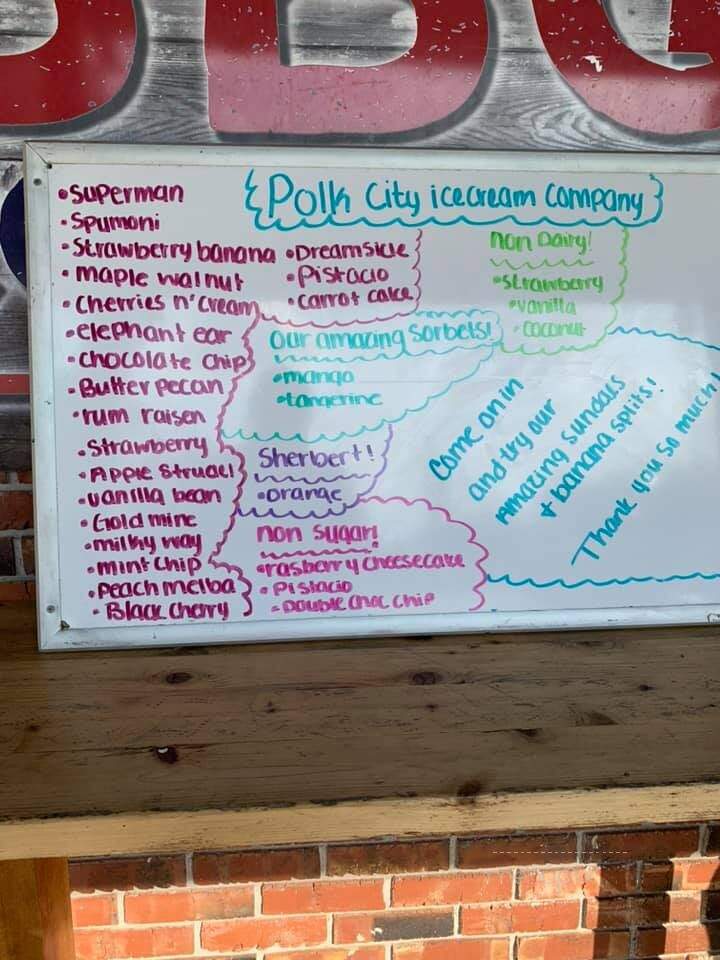 BBQ
{Polk City icecream company}
• Superman
• Spumoni
• Strawberry banana
• maple walnut
• Cherries n' cream
• elephant ear
• chocolate chip
• Butter pecan
• rum raisen
• Strawberry
• Apple Strudel
• vanilla bean
• Gold mine
• milky way
• mint chip
• peach melba
• Black cherry
• Dreamsicle
• Pistacio
• carrot cake
non Dairy!
• strawberry
• vanilla
• coconut
our amazing sorbets!
• mango
• tangerine
Sherbert!
• orange
non sugar!
• rasberry cheesecake
• Pistacio
• Double choc chip
Come on in
and try our
Amazing sundaes
+ banana splits!
Thank you so much!